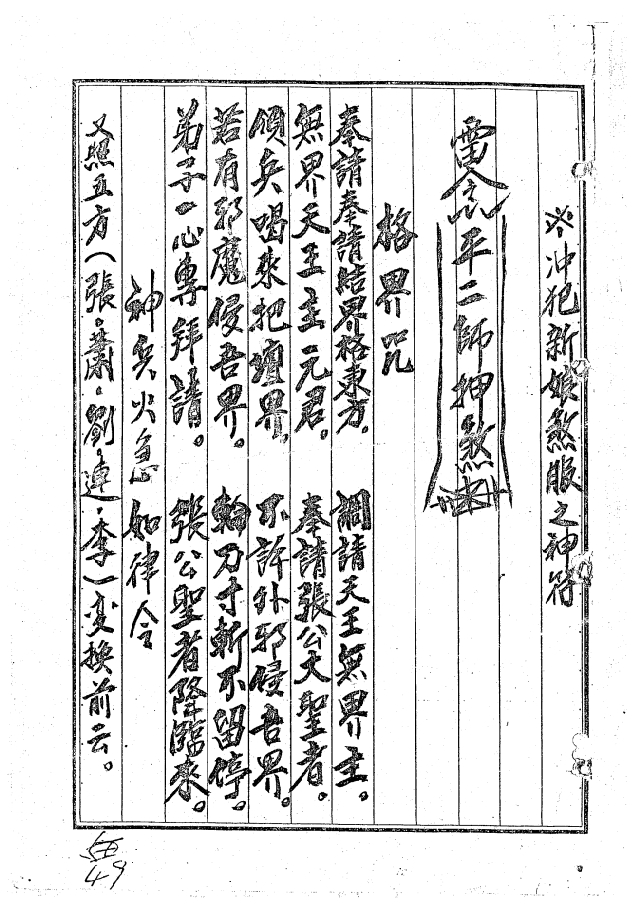 ※冲犯新娘煞服之神符
雷令平二師押煞
格界咒
奉請奉請結界格東方。調請天王無界主。
無界天王主元君。奉請張公大聖者。
領兵喝來把壇界。不許外邪侵吾界。
若有邪魔侵吾界。輪刀寸斬不留停。
弟子一心專拜請。張公聖者降臨來。
神兵火急如律令
又照五方(張.蕭.劉.連.李)变換前云。
49